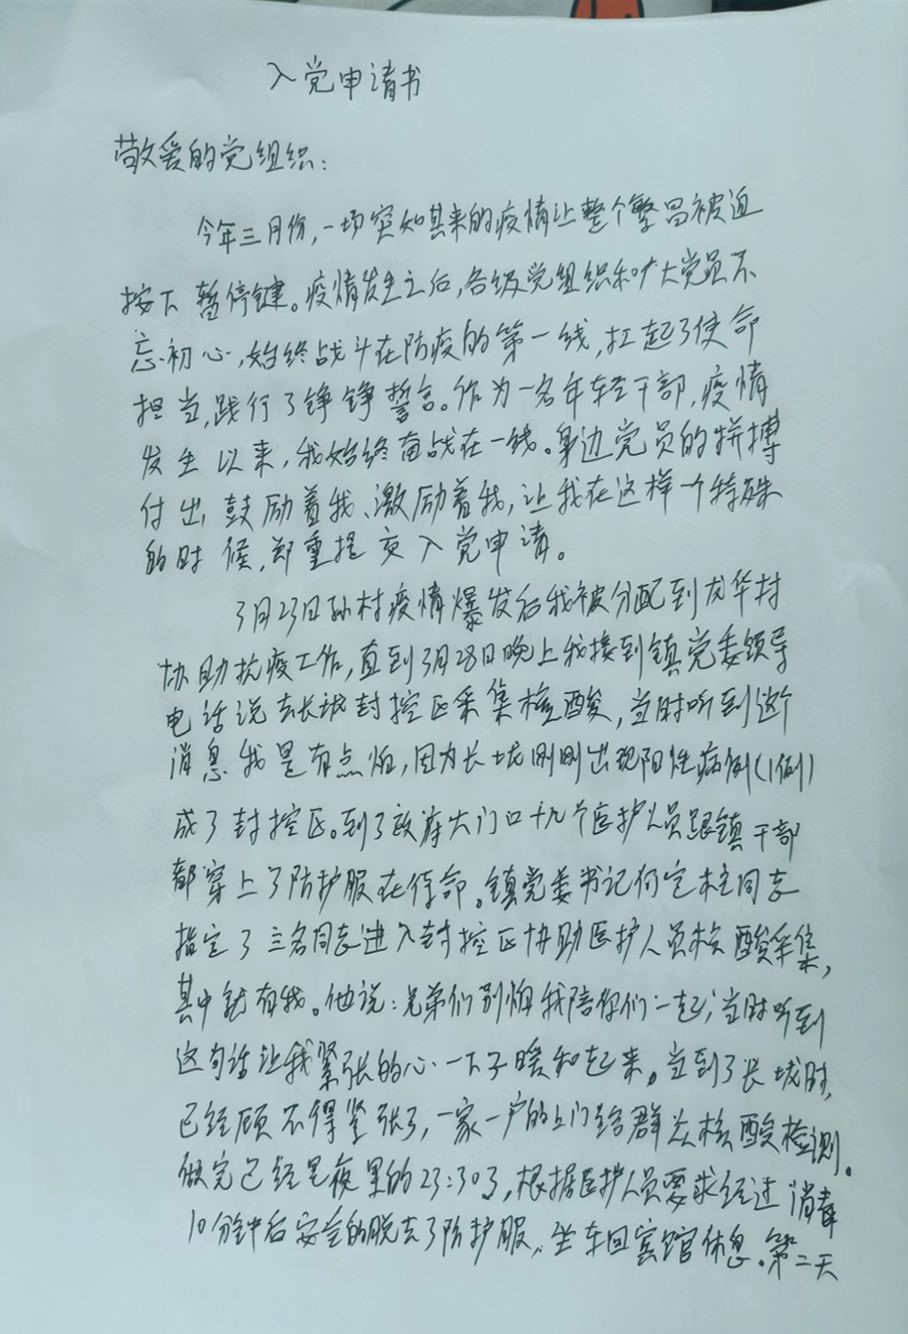 入党申请书
敬爱的党组织：
今年三月份，一场突如其来的疫情让整个繁昌被迫
按下暂停键。疫情发生之后，各级党组织和广大党员不
忘初心，始终战斗在防疫的第一线，扛起了使命
担当，践行了铮铮誓言。作为一名年轻干部，疫情
发生以来，我始终奋战在一线。身边党员的拼搏
付出，鼓励着我、激励着我，让我在这样一个特殊
的时候，郑重提交入党申请。
3月23日孙村疫情爆发后我被分配到龙华村
协助抗疫工作，直到3月28日晚上我接到镇党委领导
电话说去长垅封控区采集核酸，当时听到这个
消息我是有点怕，因为长垅刚刚出现阳性病例(1例)
成了封控区。到了政府大门口十九个医护人员跟镇干部
都穿上了防护服在待命。镇党委书记何定柱同志
指定了三名同志进入封控区协助医护人员核酸采集，
其中就有我。他说：兄弟们别怕我陪你们一起，当时听到
这句话让我紧张的心一下子暖和起来。当到了长垅时，
已经顾不得紧张了，一家一户的上门给群众核酸检测。
做完已经是夜里的23:30了，根据医护人员要求经过消毒
10分钟后安全的脱去了防护服，坐车回宾馆休息。第二天